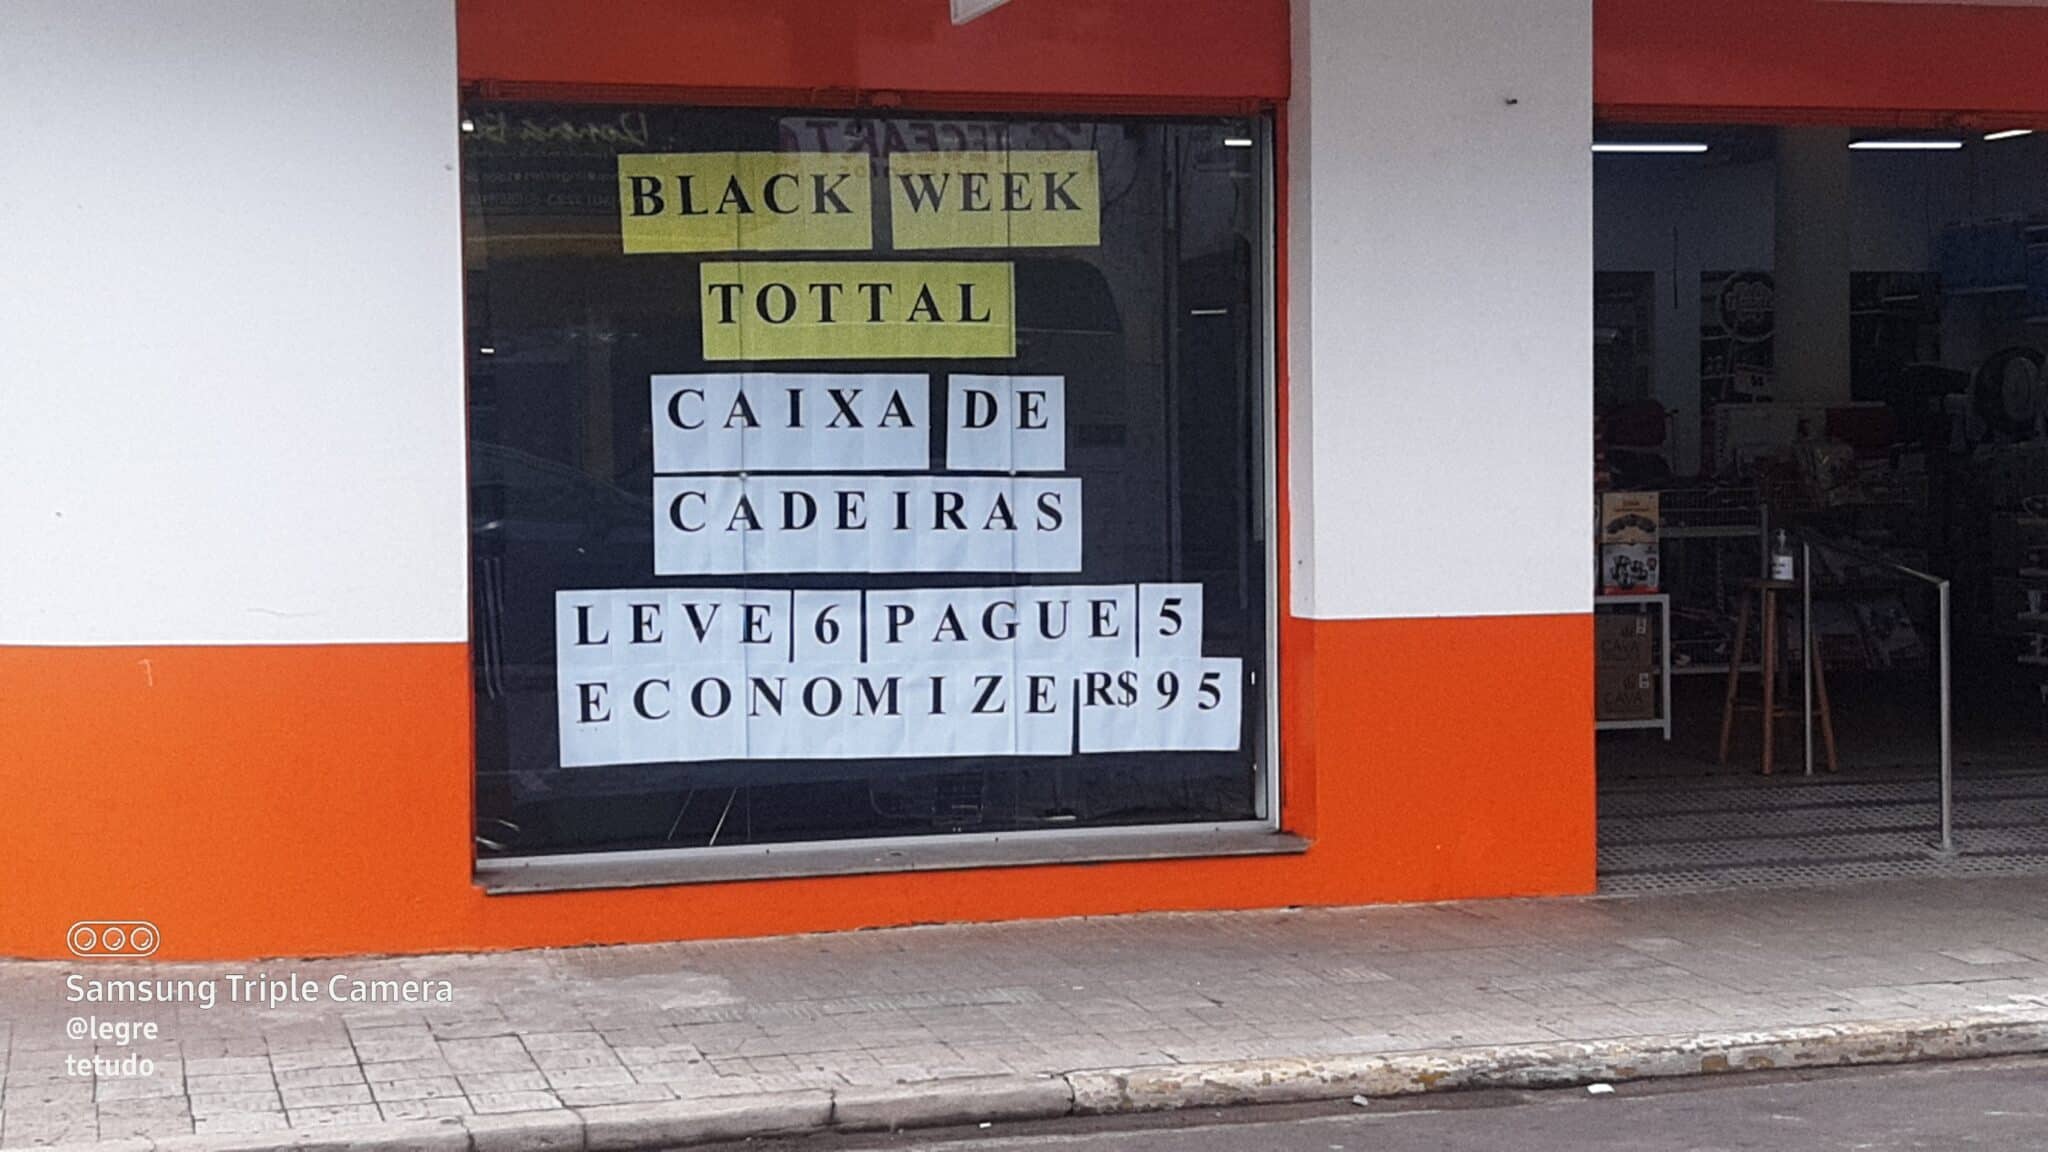 BLACK WEEK
TOTTAL
CAIXA DE
CADEIRAS
LEVE 6 PAGUE 5
ECONOMIZE R$ 95
CAVA
Samsung Triple Camera
@legre
tetudo